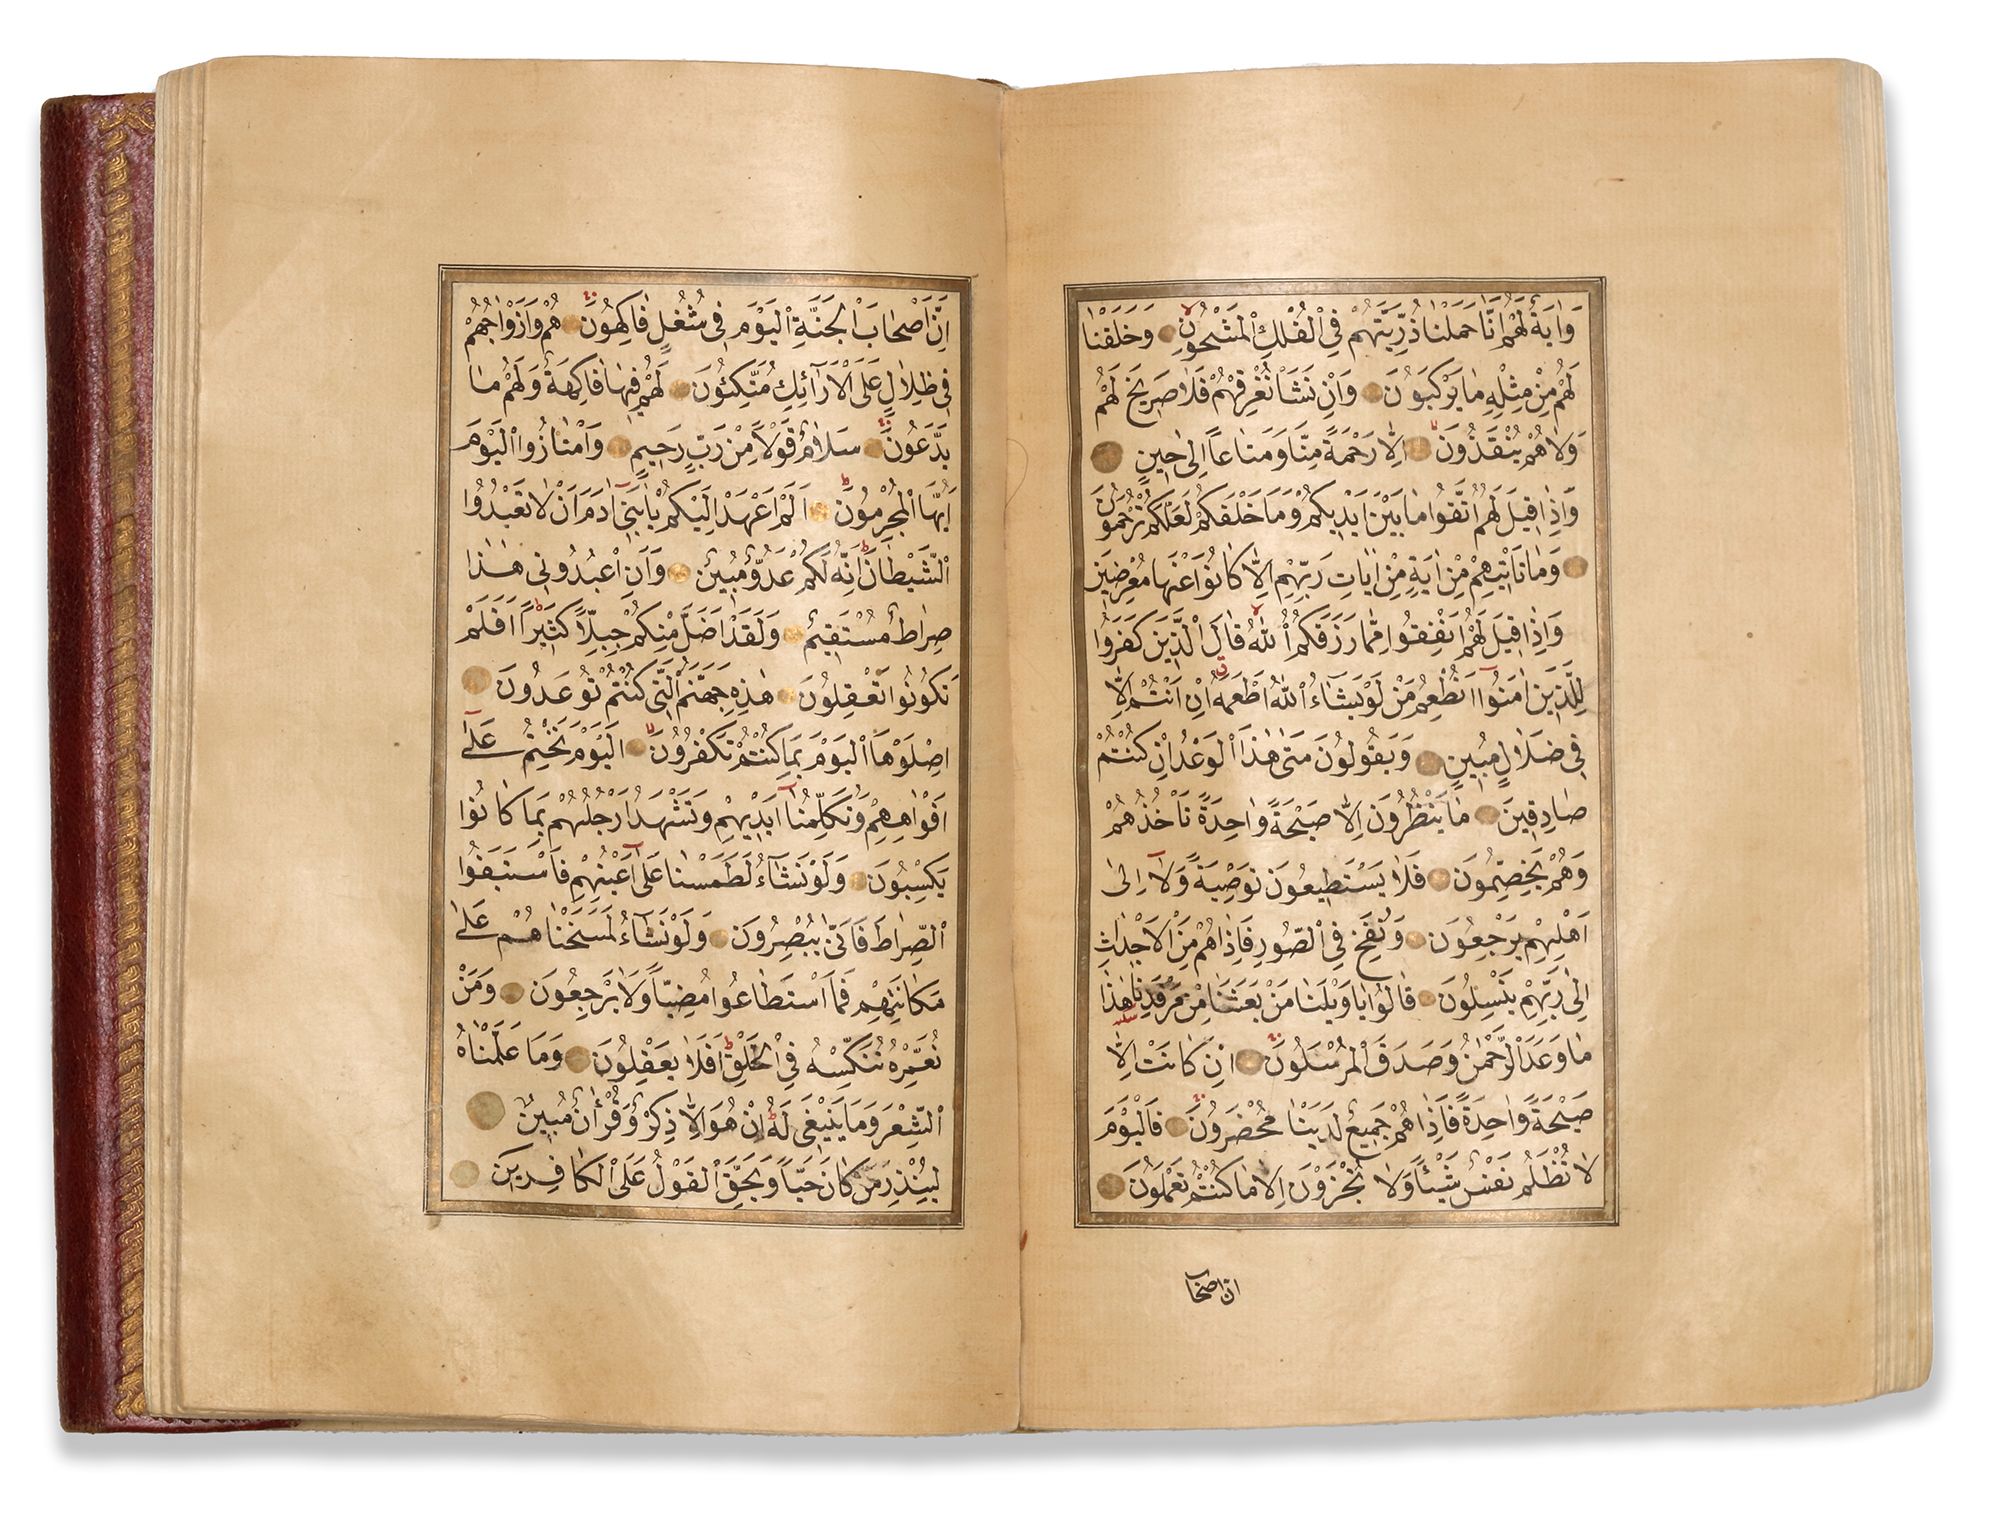 وَاٰيَةٌ لَهُمْ اَنَّا حَمَلْنَا ذُرِّيَّتَهُمْ فِي الْفُلْكِ الْمَشْحُونِ وَخَلَقْنَا
لَهُمْ مِنْ مِثْلِهِ مَا يَرْكَبُونَ وَاِنْ نَشَأْ نُغْرِقْهُمْ فَلَا صَرِيخَ لَهُمْ
وَلَا هُمْ يُنْقَذُونَ اِلَّا رَحْمَةً مِنَّا وَمَتَاعًا اِلٰى حِينٍ
وَاِذَا قِيلَ لَهُمُ اتَّقُوا مَا بَيْنَ اَيْدِيكُمْ وَمَا خَلْفَكُمْ لَعَلَّكُمْ تُرْحَمُونَ
وَمَا تَاْتِيهِمْ مِنْ اٰيَةٍ مِنْ اٰيَاتِ رَبِّهِمْ اِلَّا كَانُوا عَنْهَا مُعْرِضِينَ
وَاِذَا قِيلَ لَهُمْ اَنْفِقُوا مِمَّا رَزَقَكُمُ اللّٰهُ قَالَ الَّذِينَ كَفَرُوا
لِلَّذِينَ اٰمَنُوا اَنُطْعِمُ مَنْ لَوْ يَشَاءُ اللّٰهُ اَطْعَمَهُ اِنْ اَنْتُمْ اِلَّا
فِي ضَلَالٍ مُبِينٍ وَيَقُولُونَ مَتٰى هٰذَا الْوَعْدُ اِنْ كُنْتُمْ
صَادِقِينَ مَا يَنْظُرُونَ اِلَّا صَيْحَةً وَاحِدَةً تَاْخُذُهُمْ
وَهُمْ يَخِصِّمُونَ فَلَا يَسْتَطِيعُونَ تَوْصِيَةً وَلَا اِلٰى
اَهْلِهِمْ يَرْجِعُونَ وَنُفِخَ فِي الصُّورِ فَاِذَا هُمْ مِنَ الْاَجْدَاثِ
اِلٰى رَبِّهِمْ يَنْسِلُونَ قَالُوا يَا وَيْلَنَا مَنْ بَعَثَنَا مِنْ مَرْقَدِنَا هٰذَا
مَا وَعَدَ الرَّحْمٰنُ وَصَدَقَ الْمُرْسَلُونَ اِنْ كَانَتْ اِلَّا
صَيْحَةً وَاحِدَةً فَاِذَا هُمْ جَمِيعٌ لَدَيْنَا مُحْضَرُونَ فَالْيَوْمَ
لَا تُظْلَمُ نَفْسٌ شَيْئًا وَلَا تُجْزَوْنَ اِلَّا مَا كُنْتُمْ تَعْمَلُونَ
ان اصحاب
اِنَّ اَصْحَابَ الْجَنَّةِ الْيَوْمَ فِي شُغُلٍ فَاكِهُونَ هُمْ وَاَزْوَاجُهُمْ
فِي ظِلَالٍ عَلَى الْاَرَائِكِ مُتَّكِئُونَ لَهُمْ فِيهَا فَاكِهَةٌ وَلَهُمْ مَا
يَدَّعُونَ سَلَامٌ قَوْلًا مِنْ رَبٍّ رَحِيمٍ وَامْتَازُوا الْيَوْمَ
اَيُّهَا الْمُجْرِمُونَ اَلَمْ اَعْهَدْ اِلَيْكُمْ يَا بَنِي اٰدَمَ اَنْ لَا تَعْبُدُوا
الشَّيْطَانَ اِنَّهُ لَكُمْ عَدُوٌّ مُبِينٌ وَاَنِ اعْبُدُونِي هٰذَا
صِرَاطٌ مُسْتَقِيمٌ وَلَقَدْ اَضَلَّ مِنْكُمْ جِبِلًّا كَثِيرًا اَفَلَمْ
تَكُونُوا تَعْقِلُونَ هٰذِهِ جَهَنَّمُ الَّتِي كُنْتُمْ تُوعَدُونَ
اِصْلَوْهَا الْيَوْمَ بِمَا كُنْتُمْ تَكْفُرُونَ اَلْيَوْمَ نَخْتِمُ عَلٰى
اَفْوَاهِهِمْ وَتُكَلِّمُنَا اَيْدِيهِمْ وَتَشْهَدُ اَرْجُلُهُمْ بِمَا كَانُوا
يَكْسِبُونَ وَلَوْ نَشَاءُ لَطَمَسْنَا عَلٰى اَعْيُنِهِمْ فَاسْتَبَقُوا
الصِّرَاطَ فَاَنّٰى يُبْصِرُونَ وَلَوْ نَشَاءُ لَمَسَخْنَاهُمْ عَلٰى
مَكَانَتِهِمْ فَمَا اسْتَطَاعُوا مُضِيًّا وَلَا يَرْجِعُونَ وَمَنْ
نُعَمِّرْهُ نُنَكِّسْهُ فِي الْخَلْقِ اَفَلَا يَعْقِلُونَ وَمَا عَلَّمْنَاهُ
الشِّعْرَ وَمَا يَنْبَغِي لَهُ اِنْ هُوَ اِلَّا ذِكْرٌ وَقُرْاٰنٌ مُبِينٌ
لِيُنْذِرَ مَنْ كَانَ حَيًّا وَيَحِقَّ الْقَوْلُ عَلَى الْكَافِرِينَ